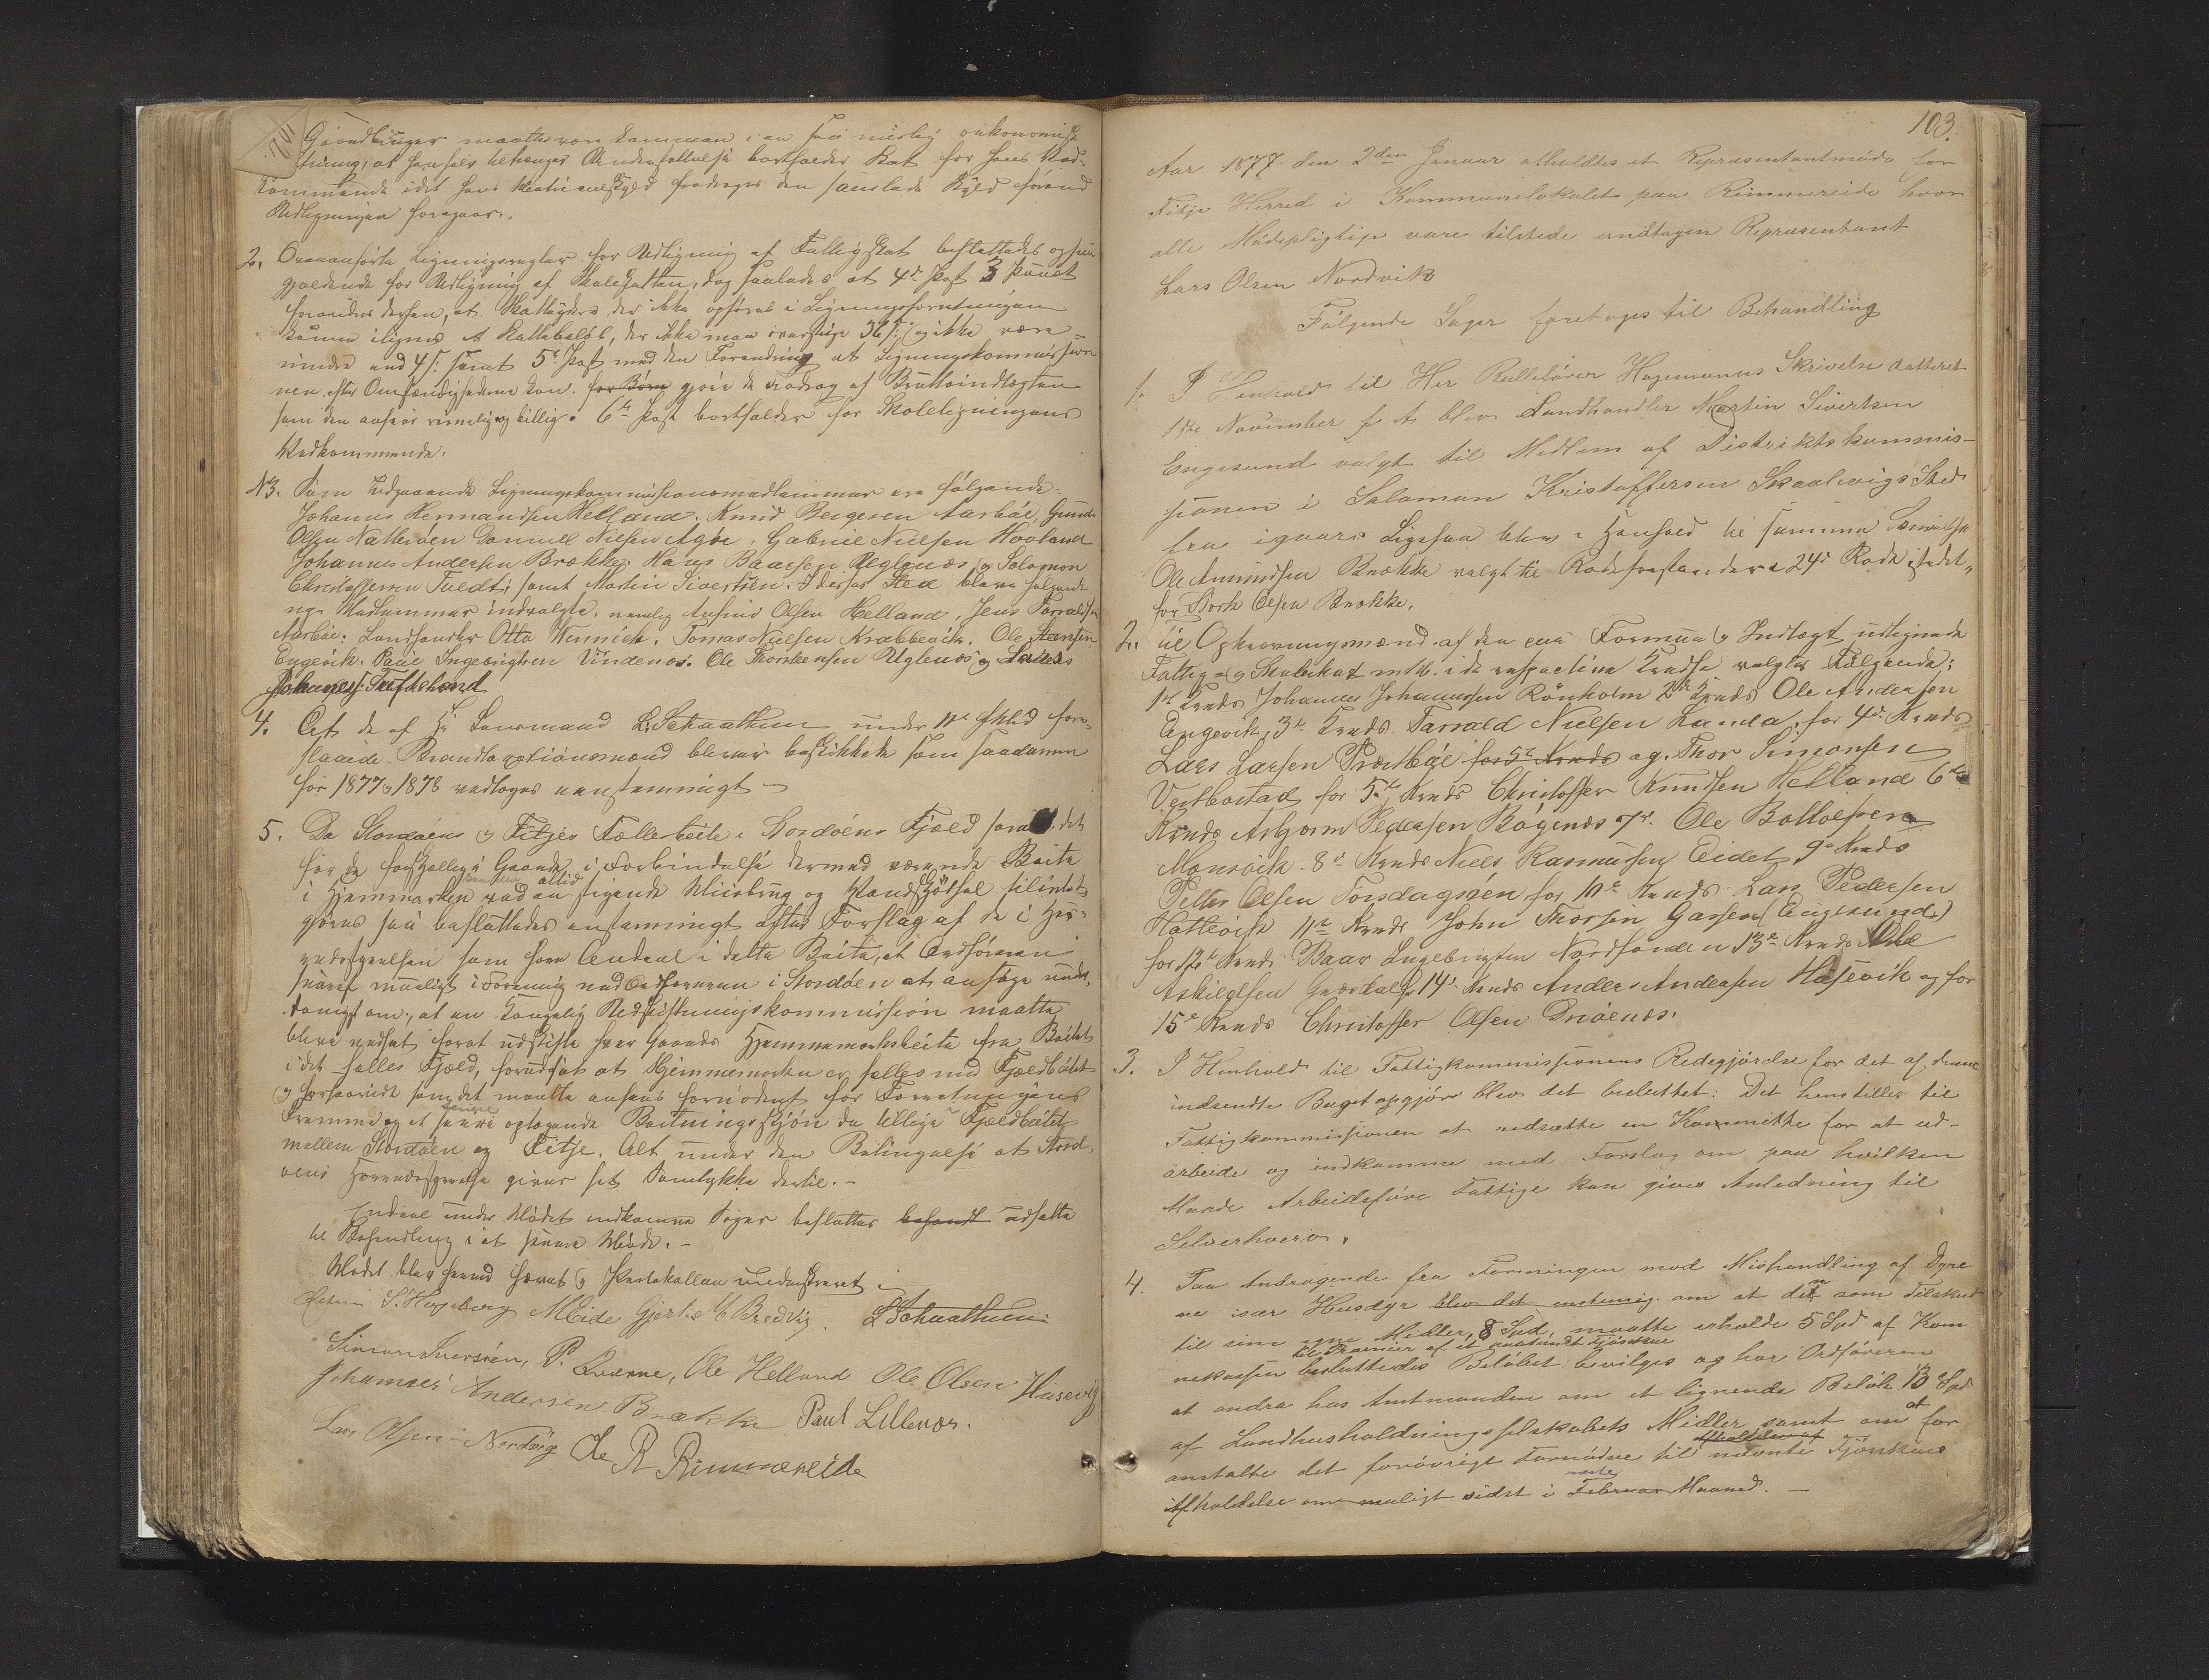 Gaardbruger maatte være kommen i en saa mislig oekonomisk
Stilling, at han hels betrænger Understøttelse bortfalder Skat for hans Ved-
kommende idet hans Matrikulskyld fradrages den samlede Skyld førend
Udligningen foregaar.
2. Ovenanførte Ligningsregler for Udligning af Fattigskat besluttedes ogsaa
gjældende for Udligning af Skoleskatten, dog saaledes at 4de Post 3 Punct
forandres derhen, at Skatydere der ikke opføres i Ligningsforretningen
kunne ilignes et Skattebeløb, der ikke maa overstige 36 s: og ikke være
mindre end 4 s: samt 5te Post med den Forandring at Ligningskommissio-
nen efter Omstændighederne kan for Børn gjøre de Fradrag af Bruttoindtægten
som den anseer rimelig og billig. 6te Post bortfalder for Skoleligningens
Vedkommende.
N3. Som Udgaaende Ligningskommissionsmedlemmer ere følgende:
Johannes Hermansen Helland. Knud Bergesen Aarbøe, Gunder
Olsen Natterøen Daniel Nielsen Agøe, Gabriel Nielsen Hovland
Johannes Andersen Brække, Hans Baarsen Uglenæs, og Solomon
Christoffersen Tvedt; samt Martin Sivertsen. I disses Sted bleve følgende
nye Medlemmer indvalgte, nemlig Anfind Olsen Helland, Jens Torvaldsen
Aarbøe. Landhandler Otto Wennich, Tomas Nielsen Krabbevik. Ole Hansen
Engevik. Paul Ingebrigtsen Vindenæs. Ole Thorbensen Uglenæs og Lars
Johannes: Tufteland
4. At de af Hr Lensmand L. Schaathun under 11te hld fore-
slaaede Brandtaxtionsmænd bliver beskikkede som saadanne
for 1877 og 1878 vedtoges eenstemmigt
5. Da Stordøens og Fitjes Fællesbeite i Stordøens Fjeld samt det
for de forskjellige Gaarde i Forbindelse dermed værende Beite
i Hjemmarken ved en altid stigende Misbrug og Vandskjøtsel tilintet-
gjøres saa besluttedes enstemmigt efter Forslag af de i Her-
redsstyrelsen som have Andeel i dette Beite, at Ordføreren
snarest mueligt i Forening med Ordføreren i Stordøen at ansøge
om, at en kongelig Udskiftningskommission maatte
blive nedsat forat udskifte hver Gaards Hjemmemarksbeite fra Beitet
i det fælles Fjeld, forudsat at Hjemmemarken er fælles med Fjeldbeitet
og forsaavidt som det maatte ansees fornødent for Forretningens
Fremme og at senere optagende Beitningsskjøn da tillige i Fjeldbeitet
mellem Stordøen og Fitje. Alt under den Betingelse at Stord-
øens Herredsstyrelse giver sit Samtykke dertil.-
Endeel under Mødet indkomne Sager besluttes behandl udsatte
til Behandling i et senere Møde.-
Mødet blev herved hævet og Protokollen underskrevet
S. Hageberg M Eide Gjert M Bredvig. L Schaathun
Simon Iversøen, P. Qværne, Ole Helland Ole Olsen Husevig
Johannes Andersen Brække Paul Lillenæs.
Lars Olsen Nordvig Ole R Rimmereide
103.
Aar 1877 den 2den Januar afholdtes et Repræsentantmøde for
Fitje Herred i Kommunelokalet paa Rimmereide hvor
alle Mødepligtige vare tilstede undtagen Repræsentant
Lars Olsen Nordvik
Følgende Sager foretages til Behandling
1. I Henhold til Her Rulleføier Hagemanns Skrivelse datteret
1ste November f. A. blev Landhandler Martin Sivertsen
Engesund valgt til Medlem af Distriktskommis-
sionen i Salamon Kristoffersen Skaalevigs Sted
fra igaar. Ligesaa blev i Henhold til samme Skrivelse
Ole Amundsen Brække valgt til Rodeforstander i 24de Rode istedet
for Stork Olsen Brække.
2. Til Opkrævningsmænd af den paa Formue og Indtægt udlignede
Fattig- og Skoleskat m.v. i de respective Kredse valgtes Følgende:
1ste Kreds Johannes Johannessen Rønholm 2den Kreds Ole Andersen
Engevik, 3de Kreds Tarrald Nielsen Landa, for 4de Kreds
Lars Larsen Prestbøe for 5te Kreds og Thor Simonsen
Vestbostad for 5te Kreds Christoffer Knudsen Helland 6te
Kreds Asbjørn Pedersen Bøgenæs 7de Ole Bottolfsen
Monsvik. 8de Kreds Niels Rasmussen Eidet, 9de Kreds
Petter Olsen Torsdagsøen for 10de Kreds Lars Pedersen
Hattevik 11te Kreds John Thorsen Garsen (Engesund)
for 12te Kreds Baar Ingebrigtsen Nordfonden 13de Kreds Ole
Askildsen Gærdal for 14de Kreds Anders Andersen Husevik og for
15de Kreds Christoffer Olsen Drøenæs.
3. I Henhold til Fattigkommissionens Redegjørelse for det af denne
indsendte Bugetopgjør blev det besluttet: Det henstilles til
Fattigkommissionen at nedsætte en Kommitte for at ud-
arbeide og indkomme med Forslag om paa hvilken
Maade Arbeidsføre Fattige kan gives Anledning til
Selverhverv.
4. Paa Andragende fra Foreningen mod Mishandling af Dyre
ne især Husdyr blev det enstemig om at den som Tilskud
til sine egne Midler, 8 Spd, maatte erholde 5 Spd af Kom
til Premier af et bestemt Fjøsskue
nekassen besluttedes Beløbet bevilges og har Ordføreren
at andra hos Amtmanden om et lignende Beløb 13 Spd
af Landhusholdningsselskabets Midler samt om at for
anstalte det forøvrigt Fornødne til afholdelse af nævnte Fjøsskues
Afholdelse om muligt sidst i Februar næste Maaned. —